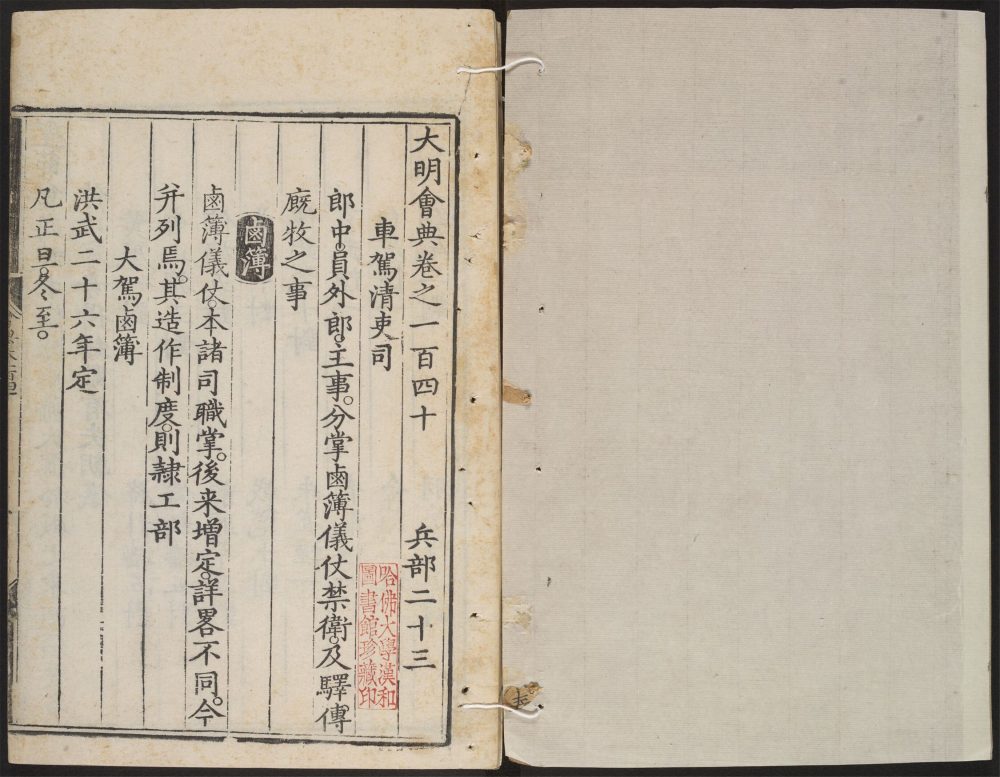 大明會典卷之一百四十　兵部二十三
車駕清吏司
郎中。員外郎。主事。分掌鹵簿儀仗禁衛。及驛傳
廐牧之事
鹵簿
鹵簿儀仗。本諸司職掌。後来增定。詳畧不同。今
并列焉。其造作制度。則隸工部
大駕鹵簿
洪武二十六年定
凡正旦冬至。
哈佛大學漢和
圖書館珍藏印